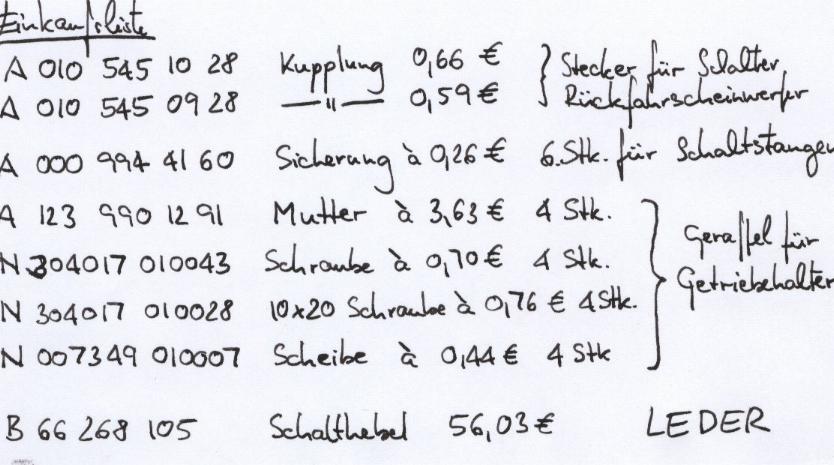 Einkaufsliste
A 010 545 10 28 Kupplung 0,66 € } Stecker für Schalter
A 010 545 09 28 —"— 0,59 € } Rückfahrscheinwerfer
A 000 994 41 60 Sicherung à 0,26 € 6.Stk. für Schaltstangen
A 123 990 12 91 Mutter à 3,63 € 4 Stk.
N 304017 010043 Schraube à 0,70 € 4 Stk.
N 304017 010028 10x20 Schraube à 0,76 € 4 Stk.
N 007349 010007 Scheibe à 0,44 € 4 Stk
Geraffel für
Getriebehalter
B 66 268 105 Schalthebel 56,03 € LEDER